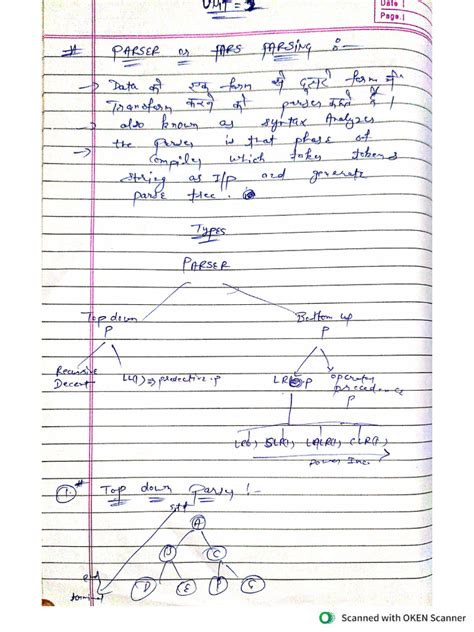 UNIT = 2
Date
Page. 1
# PARSER or PARSING :-
→ Data को एक form से दूसरे form में
Transform करने को parser कहते है।
→ also known as syntax Analyzer
→ the parser is that phase of
compiler which takes tokens
string as I/p and generate
parse tree.
Types
PARSER
Top down
P
Bottom up
P
Recursive
Decent
LL(1) ⇒ predictive p
LR P
operator
precedence
P
LR(0), SLR(1), LALR(1), CLR(1)
power Inc.
① # Top down Parsy !-
A
B C
D E F G
end
terminal
Scanned with OKEN Scanner